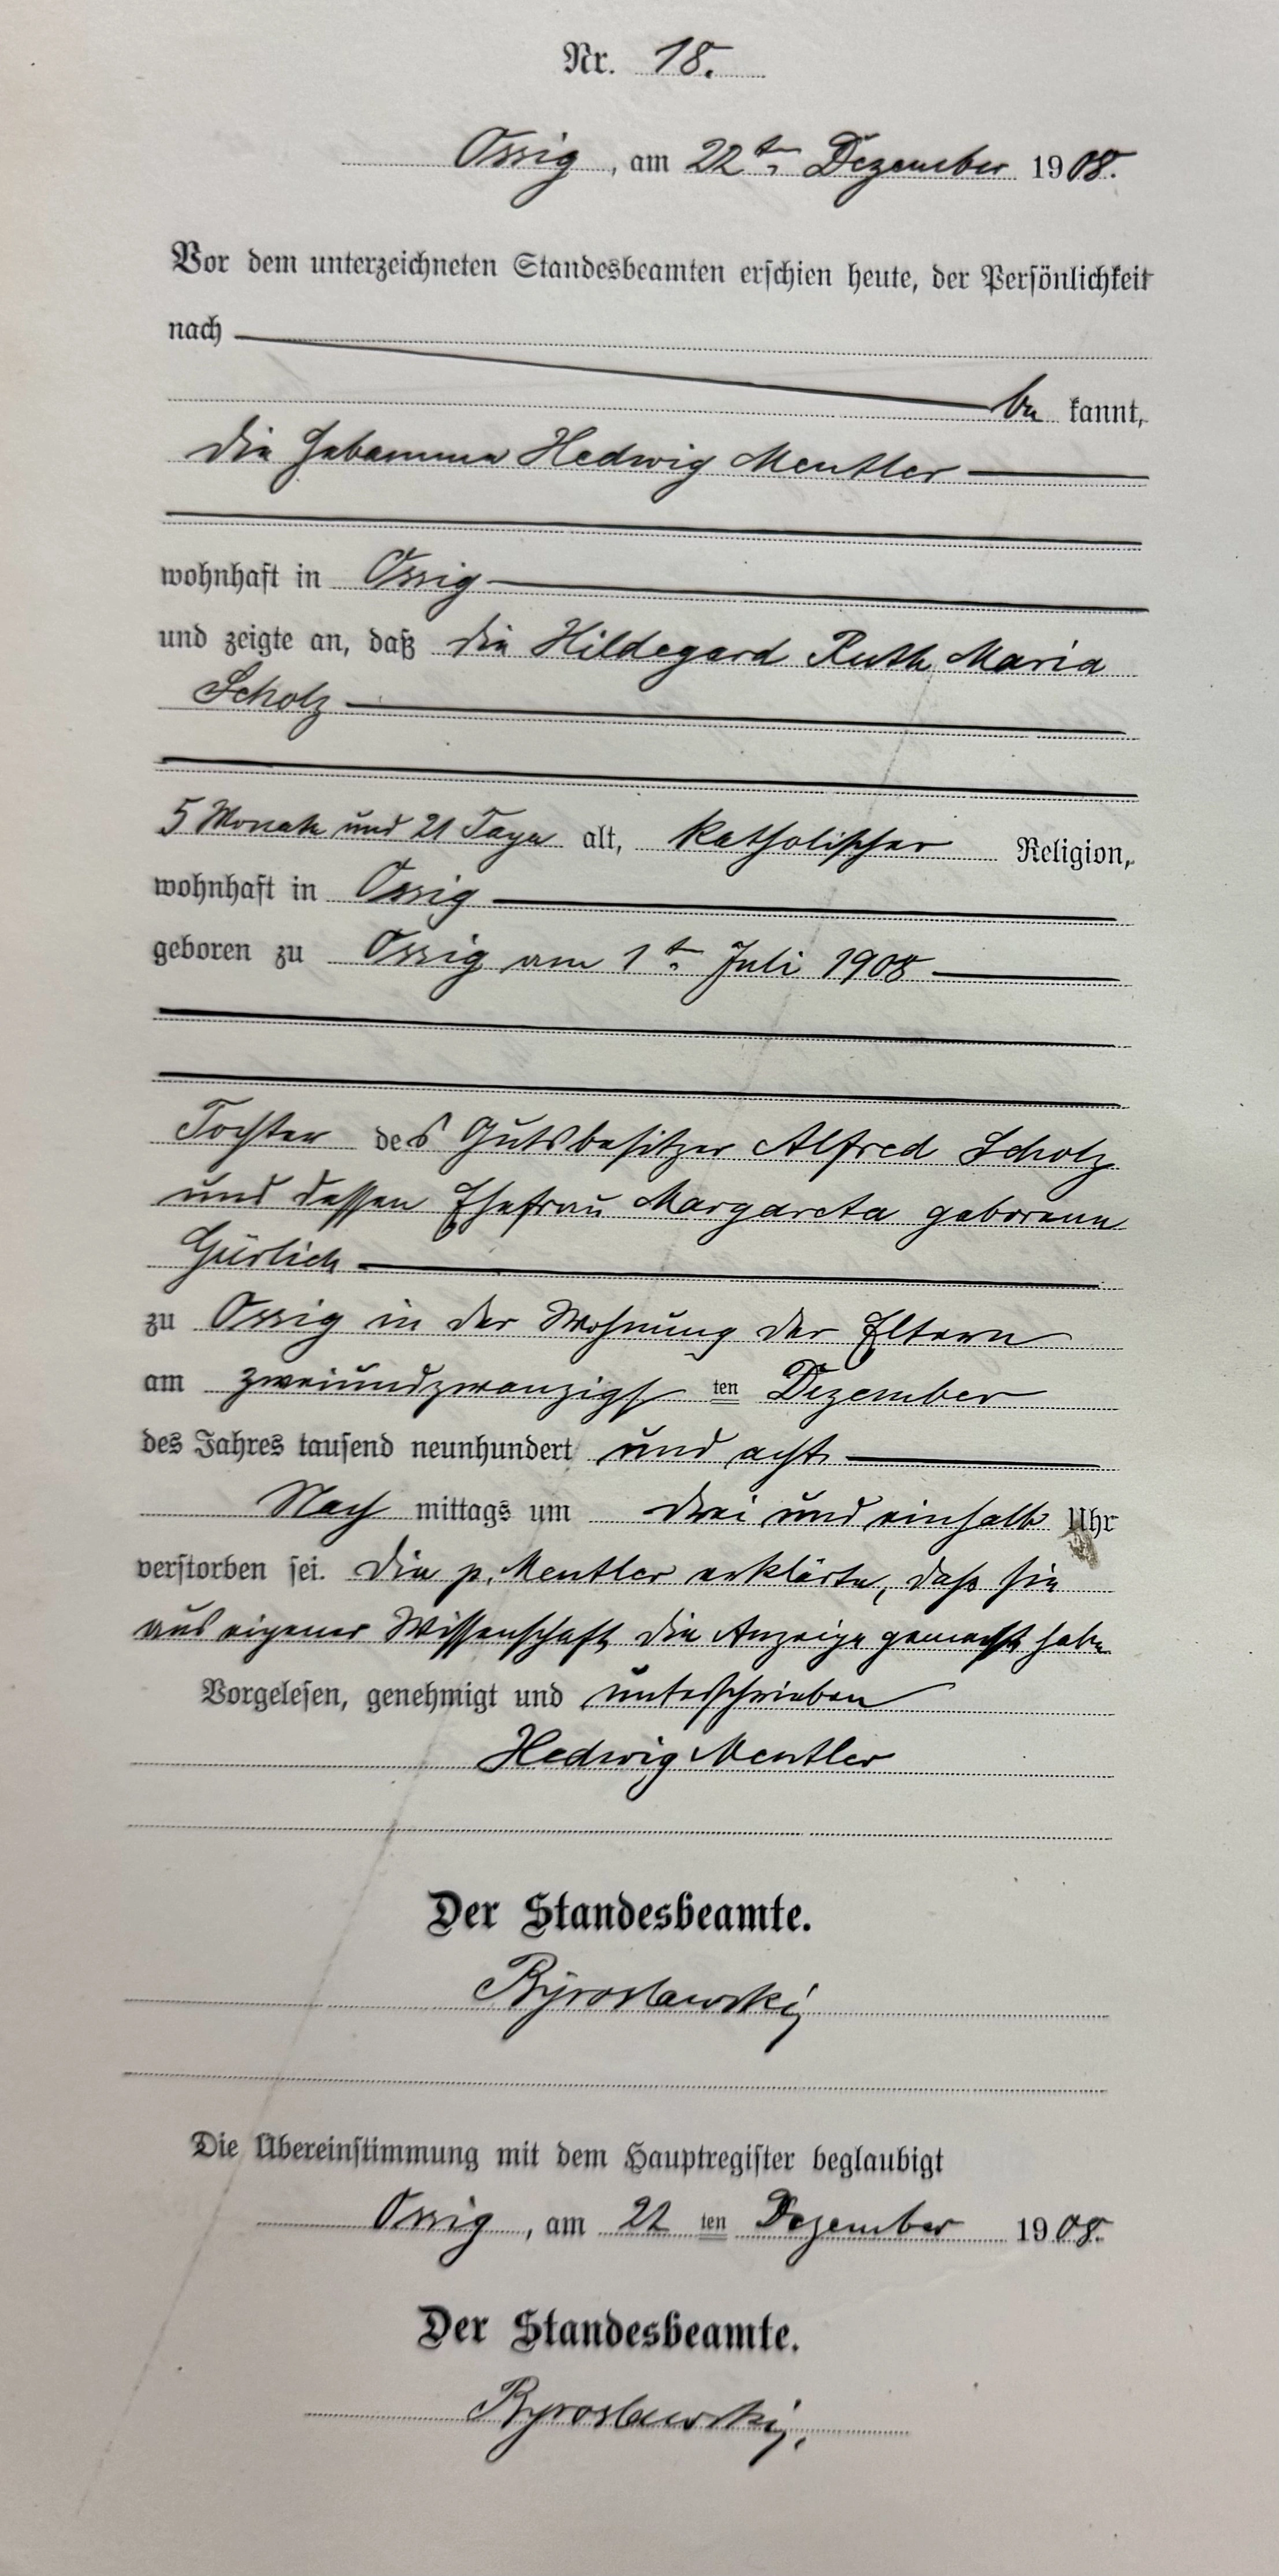 Nr. 18.
Ossig, am 22ten Dezember 1908.
Vor dem unterzeichneten Standesbeamten erschien heute, der Persönlichkeit
nach
be kannt,
die Hebamme Hedwig Mentler
wohnhaft in Ossig
und zeigte an, daß die Hildegard Ruth Maria
Scholz
5 Monate und 21 Tage alt, katholischer Religion,
wohnhaft in Ossig
geboren zu Ossig am 1ten Juli 1908
Tochter des Gutsbesitzer Alfred Scholz
und dessen Ehefrau Margareta geborene
Gürlich
zu Ossig in der Wohnung der Eltern
am zweiundzwanzigs ten Dezember
des Jahres tausend neunhundert und acht
Nach mittags um drei und einhalb Uhr
verstorben sei. Die p. Mentler erklärte, daß sie
aus eigener Wissenschaft die Anzeige gemacht habe
Vorgelesen, genehmigt und unterschrieben
Hedwig Mentler
Der Standesbeamte.
Die Übereinstimmung mit dem Hauptregister beglaubigt
Ossig, am 22 ten Dezember 1908.
Der Standesbeamte.